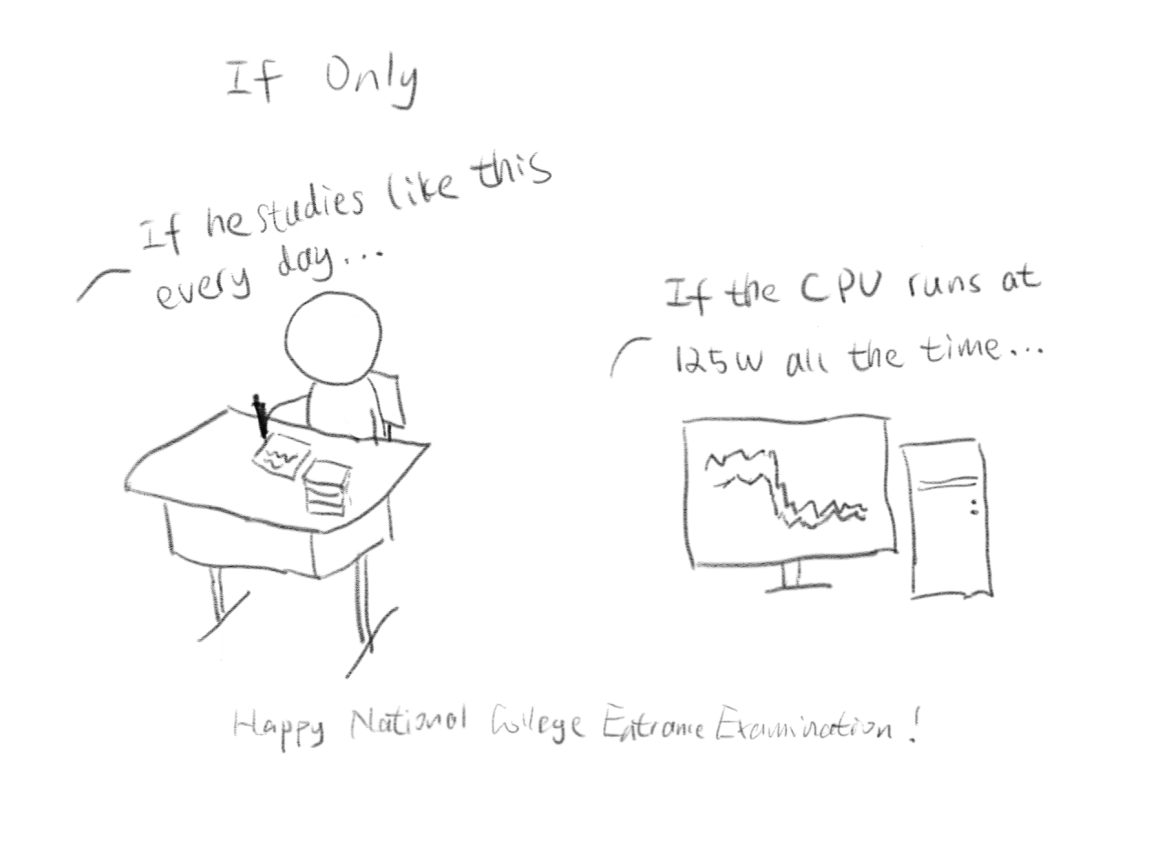 If Only
If he studies like this
every day...
If the CPU runs at
125W all the time...
Happy National College Entrance Examination!